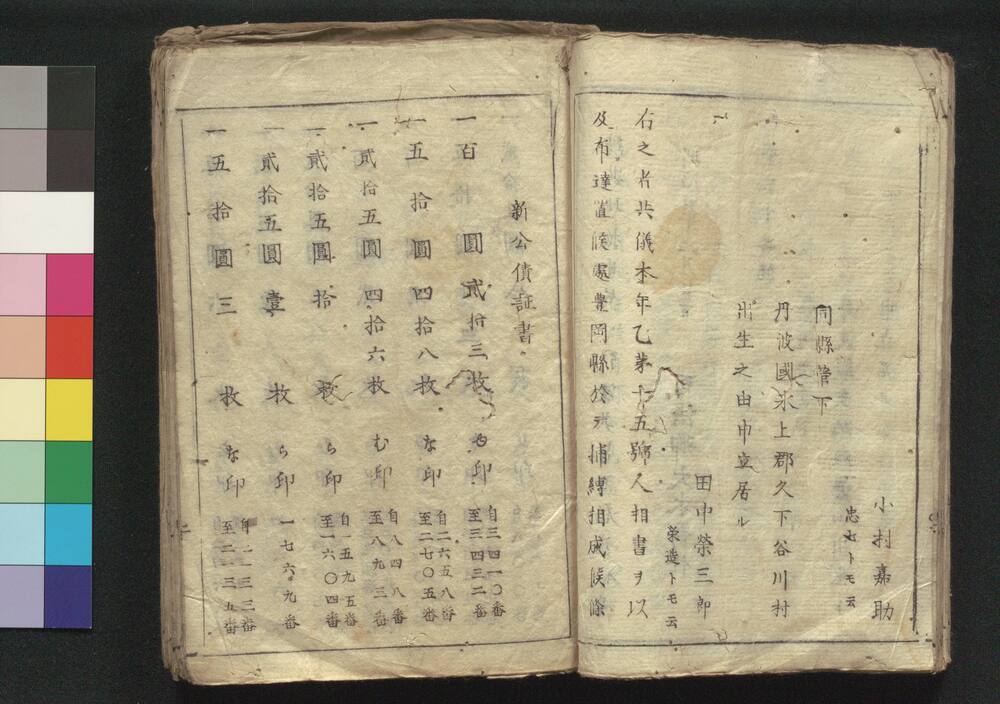 小村嘉助
忠七トモ云
同縣管下
丹波國氷上郡久下谷川村
出生之由申立居ル
田中榮三郎
榮造トモ云
右之者共儀本年乙第十五號人相書ヲ以
及布達置候處豊岡縣於テ捕縛相成候條
新公債証書
一百圓貳拾三枚 印 自三四一〇番 至三四三二番
一五拾圓四拾八枚 な印 自二六五八番 至二七〇五番
一貳拾五圓四拾六枚 む印 自八四八番 至八九三番
一貳拾五圓拾枚 ら印 自一五九五番 至一六〇四番
一貳拾五圓壹枚 ら印 一七六九番
一五拾圓三枚 な印 自二一三三番 至二一三五番